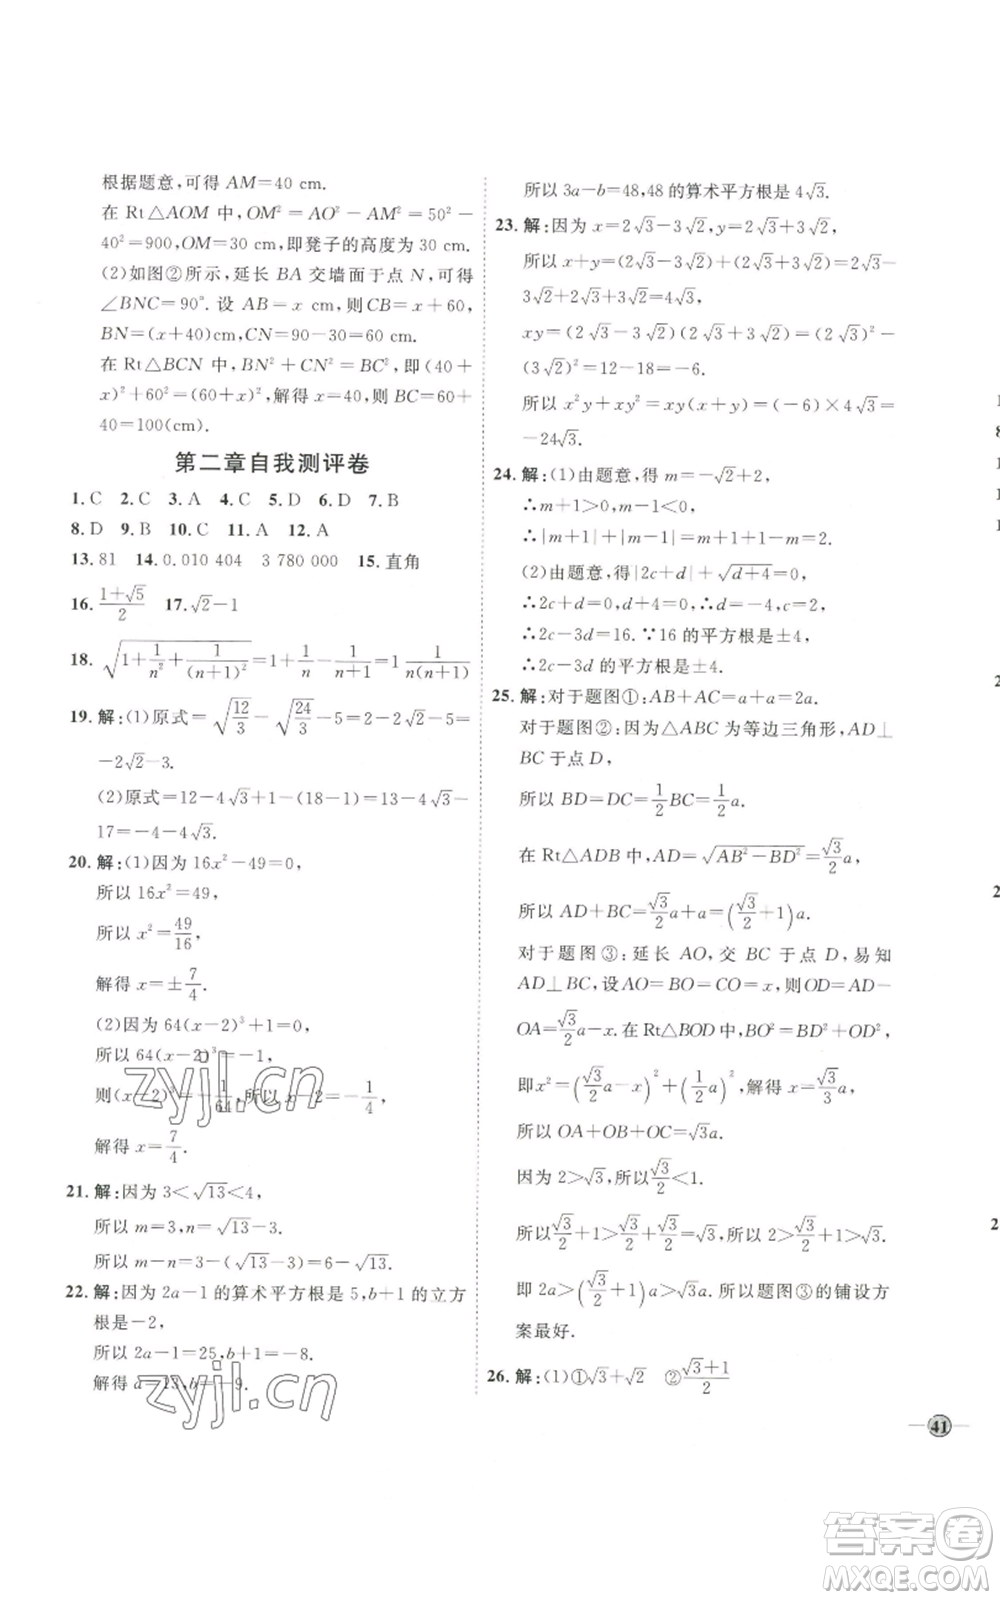 根据题意,可得 AM=40 cm.
在 Rt△AOM 中,OM²=AO²-AM²=50²-
40²=900,OM=30 cm,即凳子的高度为 30 cm.
(2)如图②所示,延长 BA 交墙面于点 N,可得
∠BNC=90°. 设 AB=x cm,则 CB=x+60,
BN=(x+40)cm,CN=90-30=60 cm.
在 Rt△BCN 中,BN²+CN²=BC²,即(40+
x)²+60²=(60+x)²,解得 x=40,则 BC=60+
40=100(cm).
第二章自我测评卷
1. C 2. C 3. A 4. C 5. D 6. D 7. B
8. D 9. B 10. C 11. A 12. A
13. 81 14. 0.010 404 3 780 000 15. 直角
16. (1+√5)/2 17. √2-1
18. √(1+1/n²+1/(n+1)²)=1+1/n-1/(n+1)=1 1/(n(n+1))
19. 解:(1)原式=√(12/3)-√(24/3)-5=2-2√2-5=
-2√2-3.
(2)原式=12-4√3+1-(18-1)=13-4√3-
17=-4-4√3.
20. 解:(1)因为 16x²-49=0,
所以 16x²=49,
所以 x²=49/16,
解得 x=±7/4.
(2)因为 64(x-2)³+1=0,
所以 64(x-2)³=-1,
则(x-2)³=-1/64,所以 x-2=-1/4,
解得 x=7/4.
21. 解:因为 3<√13<4,
所以 m=3,n=√13-3.
所以 m-n=3-(√13-3)=6-√13.
22. 解:因为 2a-1 的算术平方根是 5,b+1 的立方
根是-2,
所以 2a-1=25,b+1=-8.
解得 a=13,b=-9.
所以 3a-b=48,48 的算术平方根是 4√3.
23. 解:因为 x=2√3-3√2,y=2√3+3√2,
所以 x+y=(2√3-3√2)+(2√3+3√2)=2√3-
3√2+2√3+3√2=4√3,
xy=(2√3-3√2)(2√3+3√2)=(2√3)²-
(3√2)²=12-18=-6.
所以 x²y+xy²=xy(x+y)=(-6)×4√3=
-24√3.
24. 解:(1)由题意,得 m=-√2+2,
∴m+1>0,m-1<0,
∴|m+1|+|m-1|=m+1+1-m=2.
(2)由题意,得|2c+d|+√(d+4)=0,
∴2c+d=0,d+4=0,∴d=-4,c=2,
∴2c-3d=16.∵16 的平方根是±4,
∴2c-3d 的平方根是±4.
25. 解:对于题图①:AB+AC=a+a=2a.
对于题图②:因为△ABC 为等边三角形,AD⊥
BC 于点 D,
所以 BD=DC=1/2BC=1/2a.
在 Rt△ADB 中,AD=√(AB²-BD²)=√3/2a,
所以 AD+BC=√3/2a+a=(√3/2+1)a.
对于题图③:延长 AO,交 BC 于点 D,易知
AD⊥BC,设AO=BO=CO=x,则 OD=AD-
OA=√3/2a-x.在 Rt△BOD 中,BO²=BD²+OD²,
即x²=(√3/2a-x)²+(1/2a)²,解得 x=√3/3a,
所以 OA+OB+OC=√3a.
因为 2>√3,所以√3/2<1,
所以√3/2+1>√3/2+√3/2=√3,所以 2>√3/2+1>√3.
即 2a>(√3/2+1)a>√3a.所以题图③的铺设方
案最好.
26. 解:(1)①√3+√2 ②(√3+1)/2
41
zyjl.cn
zyjl.cn
答案卷
MXQE.COM